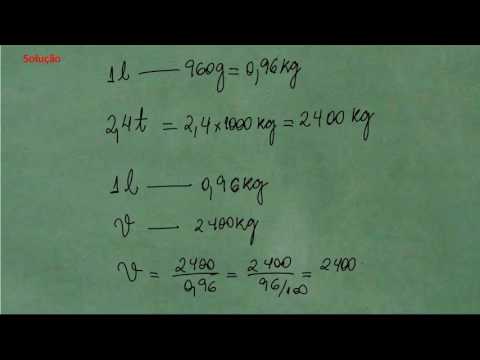 Solução
1l — 960g = 0,96kg
2,4t = 2,4×1000 kg = 2400 kg
1l — 0,96kg
V — 2400kg
V = 2400/0,96 = 2400/96/100 = 2400